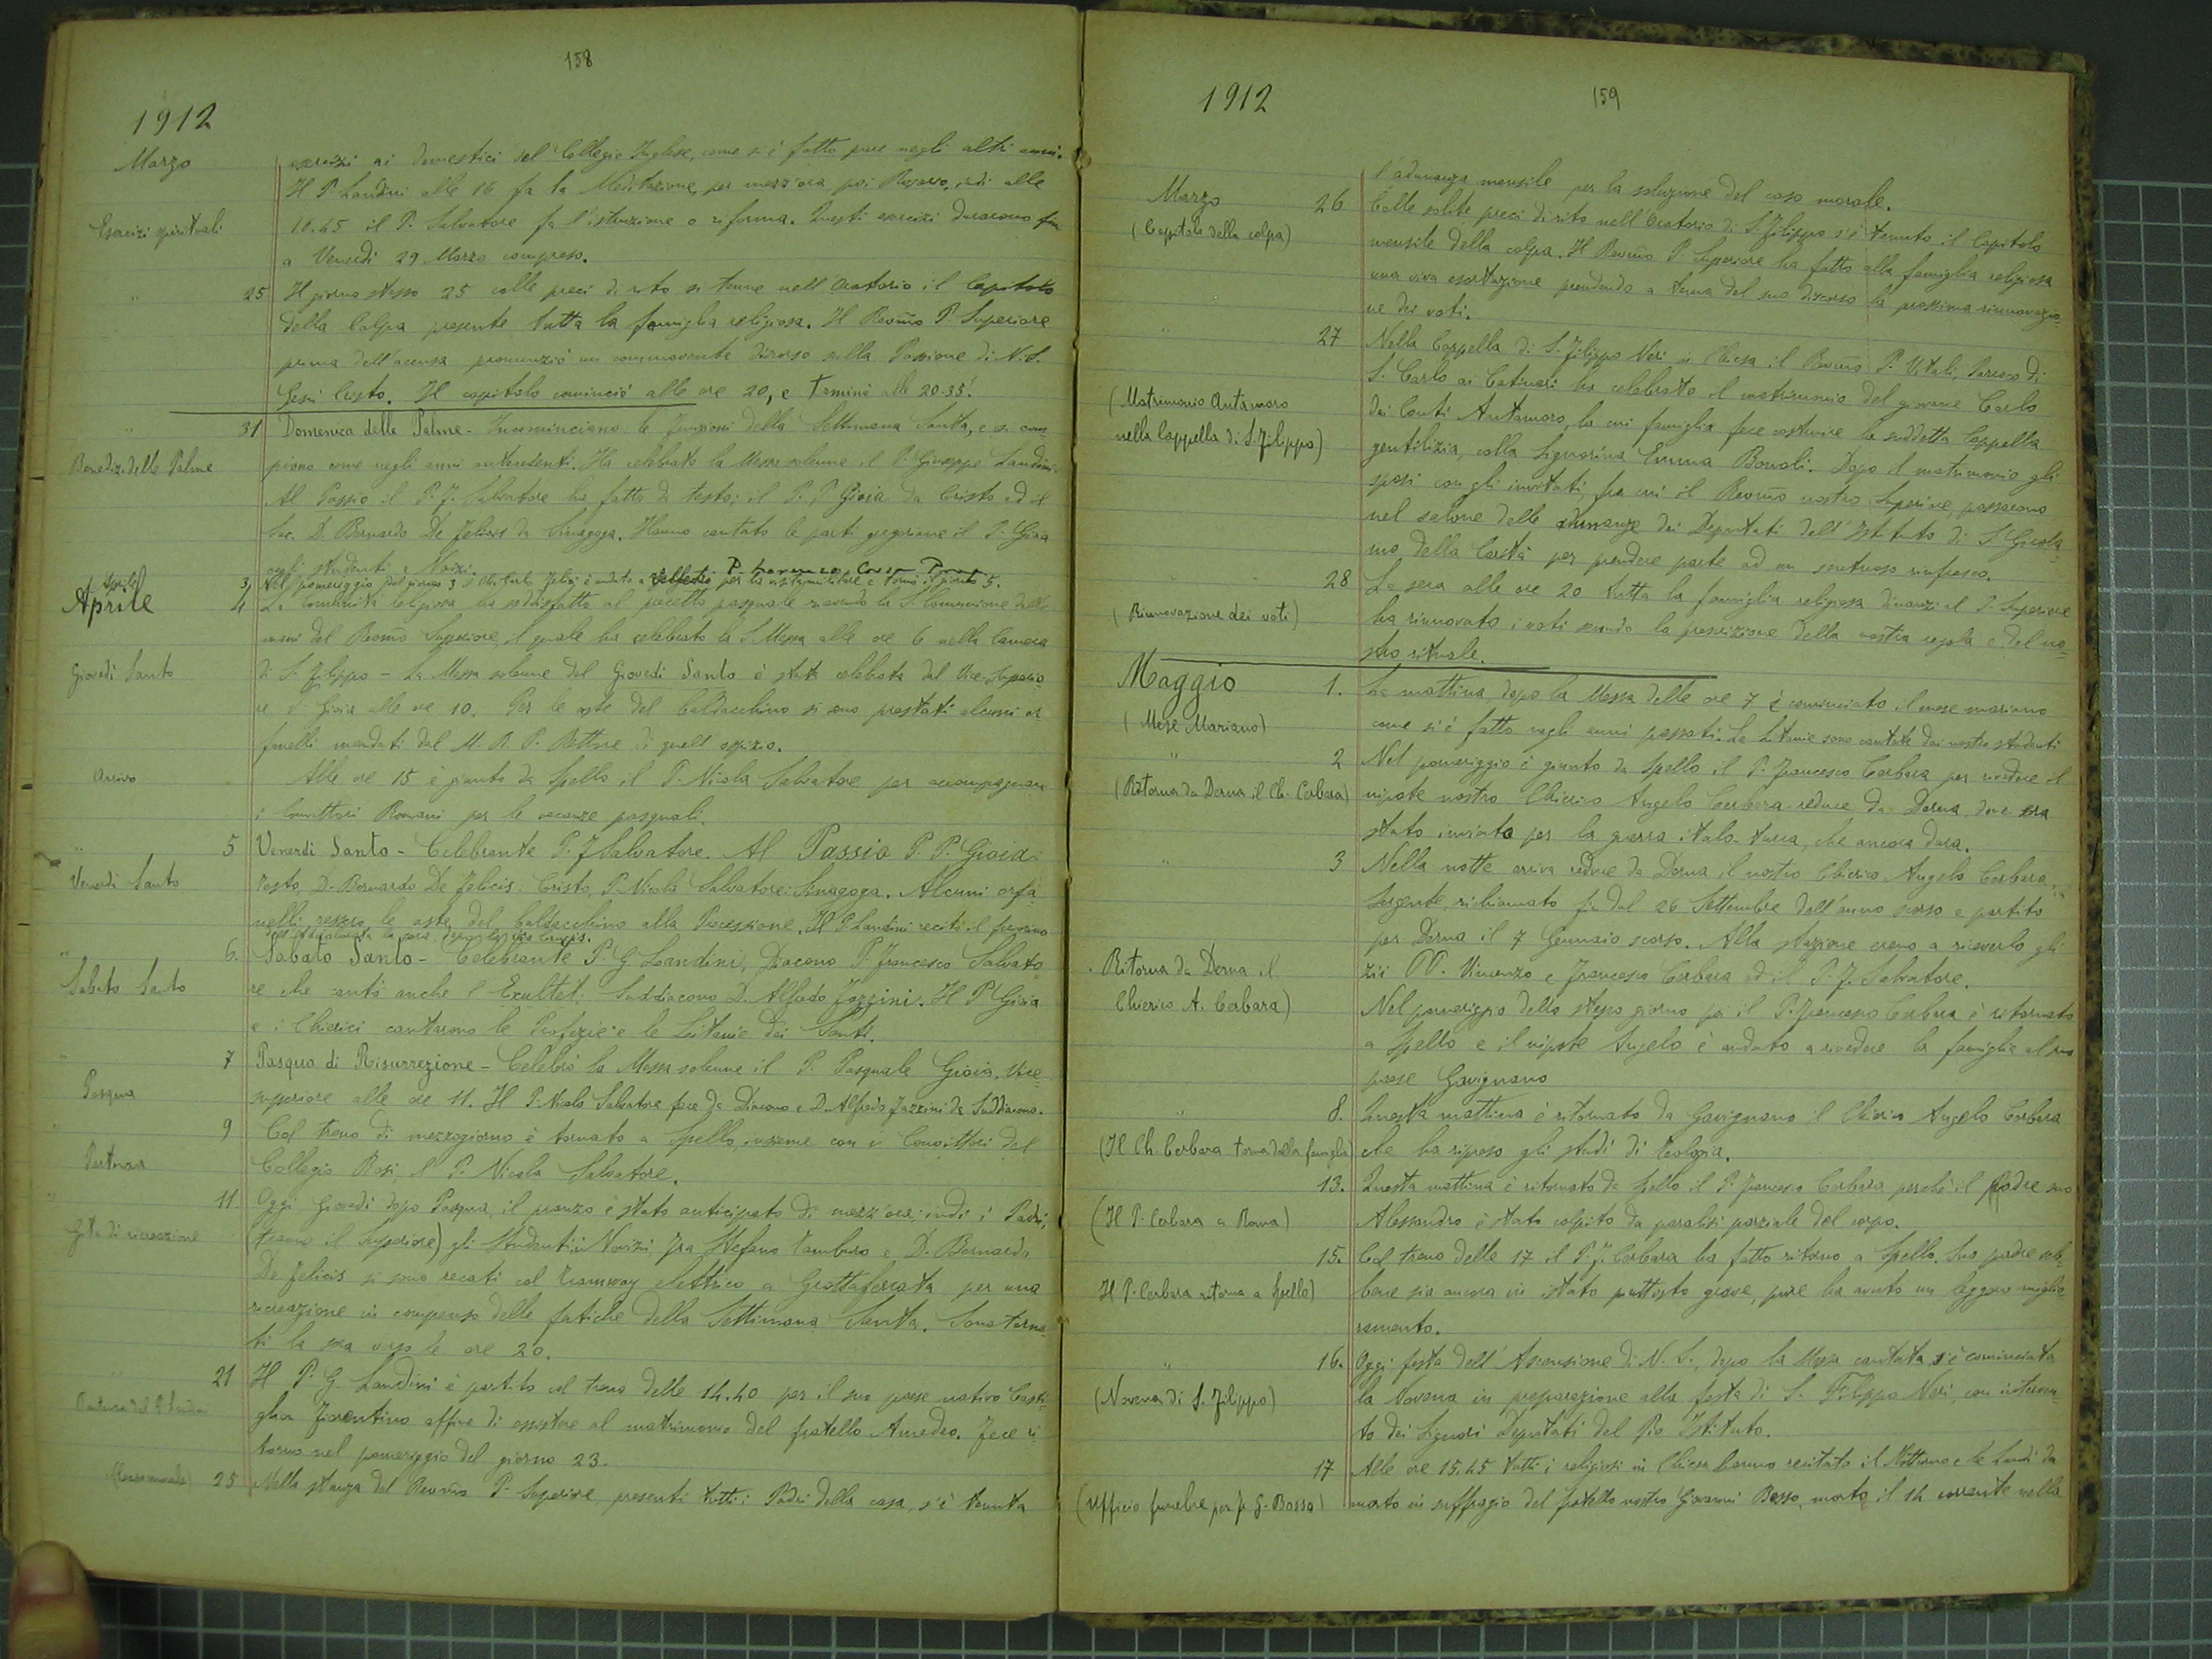 158
1912
Marzo
esercizi ai domestici del Collegio Inglese, come si è fatto pure negli altri anni.
Il P. Landini alle 16 fa la Meditazione, per mezz'ora poi Rosario, indi alle
Esercizi spirituali
16.45 il P. Salvatore fa l'istruzione o riforma. Questi esercizi durarono fino
a Venerdì 29 Marzo compreso.
" 25 Il giorno stesso 25 colle preci di rito si tenne nell'Oratorio il Capitolo
della Colpa presente tutta la famiglia religiosa. Il Revmo P. Superiore
prima dell'accusa pronunziò un commovente discorso sulla Passione di N. S.
Gesù Cristo. Il capitolo cominciò alle ore 20, e terminò alle 20.35'.
" 31 Domenica delle Palme - Incominciano le funzioni della Settimana Santa, e si com-
Benediz. delle Palme
piono come negli anni antecedenti. Ha celebrato la Messa solenne il P. Giuseppe Landini.
Al Passio il P. F. Salvatore ha fatto da testo; il P. P. Gioia da Cristo ed il
Sac. D. Bernardo De Felicis da Sinagoga. Hanno cantato le parti gregoriane il P. Gioia
cogli studenti e Novizi.
Aprile
3 Nel pomeriggio del giorno 3 il Ch. Carlo Felici è andato a Velletri per la visita militare e tornò il giorno 5.
Aprile
4 La Comunità religiosa ha soddisfatto al precetto pasquale ricevendo la S. Comunione dalle
mani del Revmo Superiore, il quale ha celebrato la S. Messa alle ore 6 nella Camera
Giovedì Santo
di S. Filippo - La Messa solenne del Giovedì Santo è stata celebrata dal Vice-Superio-
re P. Gioia alle ore 10. Per le aste del baldacchino si sono prestati alcuni or
fanelli mandati dal M. R. P. Bettoni di quell'ospizio.
Arrivo
Alle ore 15 è giunto da Spello il P. Nicola Salvatore per accompagnare
i Convittori Romani per le vacanze pasquali.
" 5 Venerdì Santo - Celebrante P. F. Salvatore. Al Passio P. P. Gioia:
Venerdì Santo
Testo, D. Bernardo De Felicis: Cristo, P. Nicola Salvatore: Sinagoga. Alcuni orfa
nelli ressero le aste del baldacchino alla Processione. Il P. Landini recitò il fervorino
la sera, dopo la Via Crucis.
" 6. Sabato Santo - Celebrante P. G. Landini, Diacono P. Francesco Salvato-
Sabato Santo
re che cantò anche l'Exultet: Suddiacono D. Alfredo Fazzini. Il P. Gioia
e i Chierici cantarono le Profezie e le Litanie dei Santi.
" 7 Pasqua di Risurrezione - Celebrò la Messa solenne il P. Pasquale Gioia, Vice-
Pasqua
superiore alle ore 11. Il P. Nicola Salvatore fece da Diacono e D. Alfredo Fazzini da Suddiacono.
" 9 Col treno di mezzogiorno è tornato a Spello, insieme con i Convittori del
Partenza
Collegio Rosi, il P. Nicola Salvatore.
" 11. Oggi Giovedì dopo Pasqua, il pranzo è stato anticipato di mezz'ora; indi i Padri,
Gita di ricreazione
(tranne il Superiore) gli Studenti i Novizi, Fra Stefano Tamburo e D. Bernardo
De Felicis si sono recati col tramway elettrico a Grottaferrata per una
ricreazione in compenso delle fatiche della Settimana Santa. Sono torna-
ti la sera verso le ore 20.
21 Il P. G. Landini è partito col treno delle 14.40 per il suo paese nativo Casti-
Partenza del P. Landini
glion Fiorentino affine di assistere al matrimonio del fratello Amedeo. Fece ri
torno nel pomeriggio del giorno 23.
(Caso morale) 25 Nella stanza del Revmo P. Superiore presenti tutti i Padri della casa, s'è tenuta
159
1912
l'adunanza mensile per la soluzione del caso morale.
Marzo 26 Colle solite preci di rito nell'Oratorio di S. Filippo s'è tenuto il Capitolo
(Capitolo della colpa)
mensile della colpa. Il Revmo P. Superiore ha fatto alla famiglia religiosa
una viva esortazione prendendo a tema del suo discorso la prossima rinnovazio-
ne dei voti.
" 27 Nella Cappella di S. Filippo Neri in Chiesa il Revmo P. Vitali, Parroco di
S. Carlo ai Catinari ha celebrato il matrimonio del giovane Carlo
(Matrimonio Antamoro
dei Conti Antamoro, la cui famiglia fece costruire la suddetta Cappella
nella Cappella di S. Filippo)
gentilizia, colla Signorina Emma Bonoli. Dopo il matrimonio gli
sposi con gli invitati, fra cui il Revmo nostro Superiore, passarono
nel salone delle adunanze dei Deputati dell'Istituto di S. Girola-
mo della Carità per prendere parte ad un sontuoso rinfresco.
" 28 La sera alle ore 20 tutta la famiglia religiosa dinanzi al P. Superiore
(Rinnovazione dei voti)
ha rinnovato i voti secondo la prescrizione della nostra regola e del no-
stro rituale.
Maggio 1. La mattina, dopo la Messa delle ore 7 è cominciato il mese mariano
(Mese Mariano)
come si è fatto negli anni passati. Le Litanie sono cantate dai nostri studenti
" 2 Nel pomeriggio è giunto da Spello il P. Francesco Cerbara per rivedere il
(Ritorna da Derna il Ch. Cerbara)
nipote nostro Chierico Angelo Cerbara reduce da Derna, dove era
stato inviato per la guerra italo-turca, che ancora dura.
" 3 Nella notte arriva reduce da Derna il nostro Chierico Angelo Cerbara,
Sergente, richiamato fin dal 26 Settembre dell'anno scorso e partito
per Derna il 7 Gennaio scorso. Alla stazione erano a riceverlo gli
Ritorna da Derna il
zii PP. Vincenzo e Francesco Cerbara ed il P. F. Salvatore.
Chierico A. Cerbara)
Nel pomeriggio dello stesso giorno poi il P. Francesco Cerbara è ritornato
a Spello e il nipote Angelo è andato a rivedere la famiglia al suo
paese Gavignano
" 8. Questa mattina è ritornato da Gavignano il Chierico Angelo Cerbara
(Il Ch. Cerbara torna dalla famiglia)
che ha ripreso gli studi di teologia.
13. Questa mattina è ritornato da Spello il P. Francesco Cerbara perchè il Padre suo
(Il P. Cerbara a Roma)
Alessandro è stato colpito da paralisi parziale del corpo.
15. Col treno delle 17 il P. F. Cerbara ha fatto ritorno a Spello. Suo padre seb-
Il P. Cerbara ritorna a Spello)
bene sia ancora in stato piuttosto grave, pure ha avuto un leggero miglio-
ramento.
" 16. Oggi festa dell'Ascensione di N. S., dopo la Messa cantata s'è cominciata
(Novena di S. Filippo)
la Novena in preparazione alla festa di S. Filippo Neri, con interven-
to dei Signori Deputati del Pio Istituto.
17 Alle ore 15.45 tutti i religiosi in Chiesa hanno recitato il Notturno e le Laudi da
(Ufficio funebre per fr. G. Bosso)
morto in suffragio del fratello nostro Giovanni Bosso, morto il 14 corrente nella